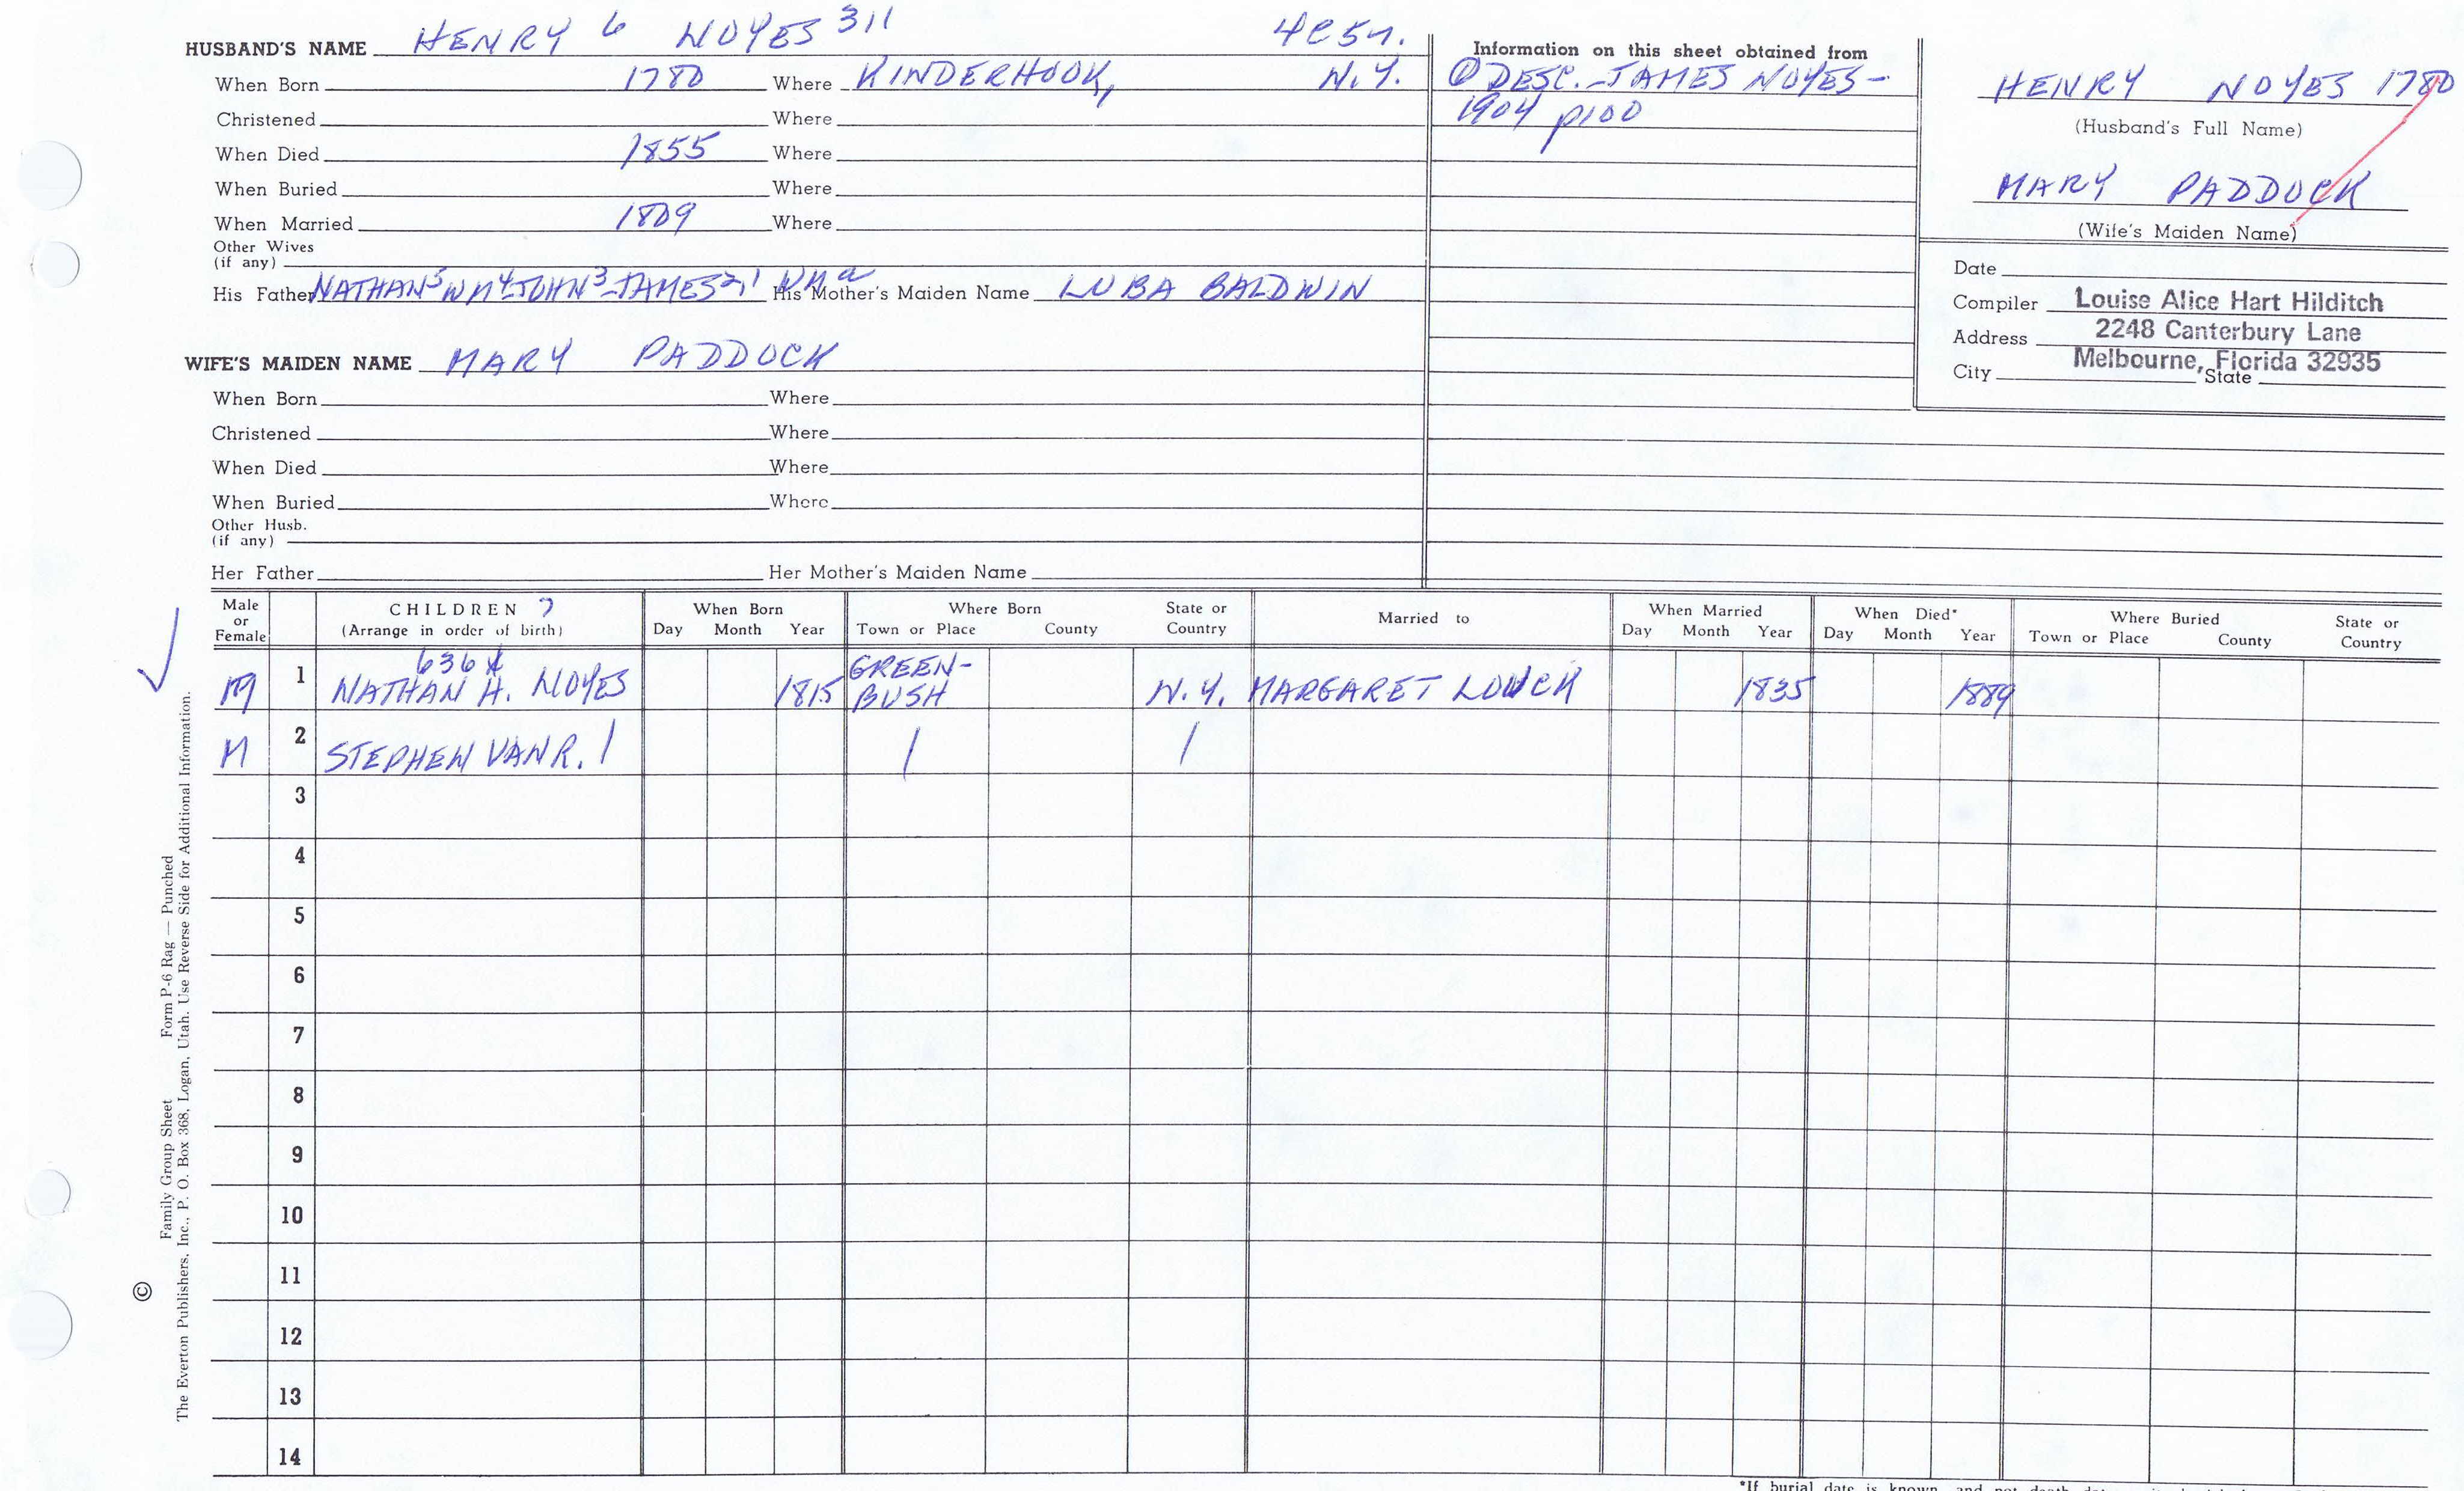 HUSBAND'S NAME HENRY 6 NOYES 311 4C5n.
When Born 1780 Where KINDERHOOK, N.Y.
Christened Where
When Died 1855 Where
When Buried Where
When Married 1809 Where
Other Wives
(if any)
His Father NATHAN5 WM4-JOHN3-JAMES2,1 Wma His Mother's Maiden Name LUBA BALDWIN
WIFE'S MAIDEN NAME MARY PADDOCK
When Born Where
Christened Where
When Died Where
When Buried Where
Other Husb.
(if any)
Her Father Her Mother's Maiden Name
Information on this sheet obtained from
① DESC.-JAMES NOYES-
1904 p100
HENRY NOYES 1780
(Husband's Full Name)
MARY PADDOCK
(Wife's Maiden Name)
Date
Compiler Louise Alice Hart Hilditch
Address 2248 Canterbury Lane
Melbourne, Florida 32935
City State
Male or Female CHILDREN ? (Arrange in order of birth) When Born Day Month Year Where Born Town or Place County State or Country Married to When Married Day Month Year When Died* Day Month Year Where Buried Town or Place County State or Country
636
M 1 NATHAN H. NOYES 1815 GREEN-BUSH N.Y. MARGARET LOUCK 1835 1889
M 2 STEPHEN VAN R. / / /
3
4
5
6
7
8
9
10
11
12
13
14
Family Group Sheet Form P-6 Rag — Punched
© The Everton Publishers, Inc., P. O. Box 368, Logan, Utah. Use Reverse Side for Additional Information.